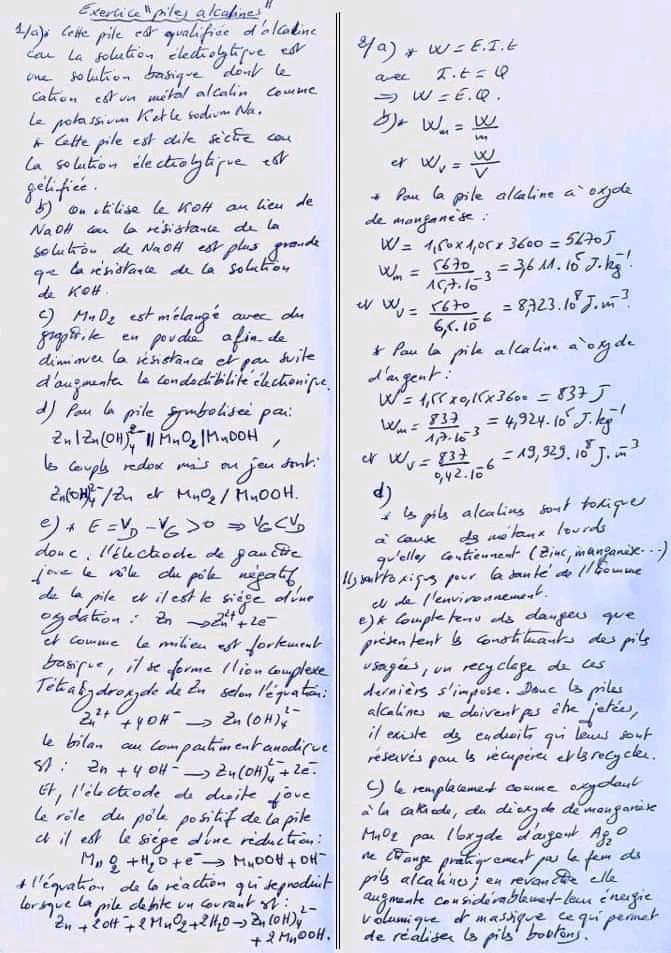 Exercice "piles alcalines"
1/a)* Cette pile est qualifiée d'alcaline
car la solution électrolytique est
une solution basique dont le
cation est un métal alcalin comme
le potassium K et le sodium Na.
* Cette pile est dite sèche car
la solution électrolytique est
gélifiée.
b) on utilise le KOH au lieu de
NaOH car la résistance de la
solution de NaOH est plus grande
que la résistance de la solution
de KOH.
c) MnO₂ est mélangé avec du
graphite en poudre afin de
diminuer la résistance et par suite
d'augmenter la conductibilité électronique.
d) Pour la pile symbolisée par:
Zn|Zn(OH)₄²⁻||MnO₂|MnOOH,
les couples redox mis en jeu sont:
Zn(OH)₄²⁻/Zn et MnO₂/MnOOH.
e)* E = V_D - V_G > 0 ⇒ V_G < V_D
donc, l'électrode de gauche
joue le rôle du pôle négatif
de la pile et il est le siège d'une
oxydation: Zn → Zn²⁺ + 2e⁻
et comme le milieu est fortement
basique, il se forme l'ion complexe
Tétrahydroxyde de Zn selon l'équation:
Zn²⁺ + 4OH⁻ → Zn(OH)₄²⁻
le bilan au compartiment anodique
est: Zn + 4OH⁻ → Zn(OH)₄²⁻ + 2e⁻.
Et, l'électrode de droite joue
le rôle du pôle positif de la pile
et il est le siège d'une réduction:
MnO₂ + H₂O + e⁻ → MnOOH + OH⁻
* l'équation de la réaction qui se produit
lorsque la pile débite un courant est:
Zn + 2OH⁻ + 2MnO₂ + 2H₂O → Zn(OH)₄²⁻
+ 2MnOOH.
2/a) * W = E.I.t
avec I.t = Q
⇒ W = E.Q.
b)* W_m = W/m
et W_v = W/V
* Pour la pile alcaline à oxyde
de manganèse:
W = 1,50x1,05x3600 = 5670J
W_m = 5670/15,7.10⁻³ = 3,611.10⁵ J.kg⁻¹
et W_v = 5670/6,5.10⁻⁶ = 8,723.10⁸ J.m⁻³
* Pour la pile alcaline à oxyde
d'argent:
W = 1,55x0,15x3600 = 837 J
W_m = 837/1,7.10⁻³ = 4,924.10⁵ J.kg⁻¹
et W_v = 837/0,42.10⁻⁶ = 19,929.10⁸ J.m⁻³
d)
* les piles alcalines sont toxiques
à cause des métaux lourds
qu'elles contiennent (Zinc, manganèse...)
Ils sont toxiques pour la santé de l'homme
et de l'environnement.
e)* Compte tenu des dangers que
présentent les constituants des piles
usagées, un recyclage de ces
derniers s'impose. Donc les piles
alcalines ne doivent pas être jetées,
il existe des endroits qui leurs sont
réservés pour les récupérer et les recycler.
c) le remplacement comme oxydant
à la cathode, du dioxyde de manganèse
MnO₂ par l'oxyde d'argent Ag₂O
ne change pratiquement pas la fem des
piles alcalines; en revanche elle
augmente considérablement leur énergie
volumique et massique ce qui permet
de réaliser les piles boutons.